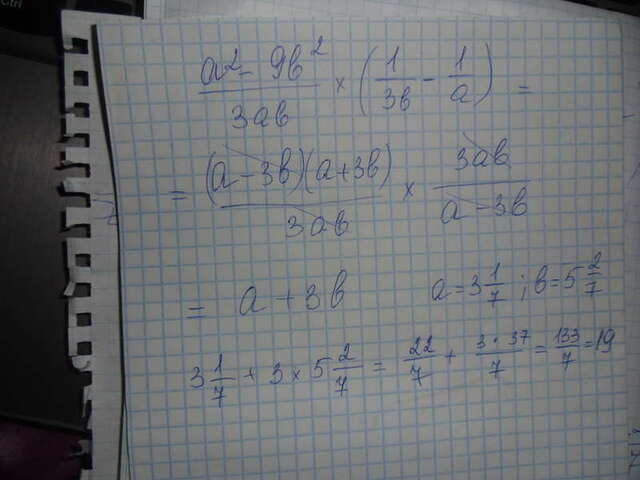 (a² - 9в²)/(3aв) × (1/(3в) - 1/a) =
= ((a-3в)(a+3в))/(3aв) × (3aв)/(a-3в)
= a + 3в a = 3 1/7 ; в = 5 2/7
3 1/7 + 3 × 5 2/7 = 22/7 + (3·37)/7 = 133/7 = 19